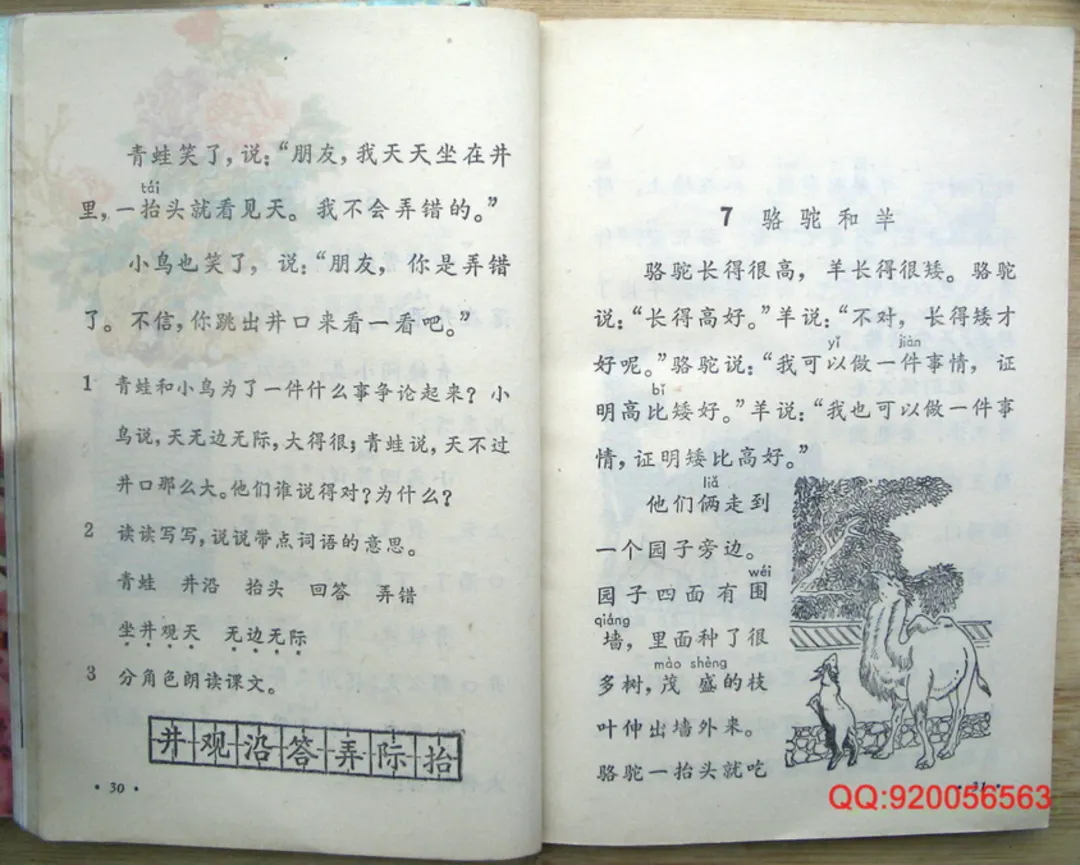 青蛙笑了，说：“朋友，我天天坐在井
tái
里，一抬头就看见天。我不会弄错的。”
小鸟也笑了，说：“朋友，你是弄错
了。不信，你跳出井口来看一看吧。”
1 青蛙和小鸟为了一件什么事争论起来？小
鸟说，天无边无际，大得很；青蛙说，天不过
井口那么大。他们谁说得对？为什么？
2 读读写写，说说带点词语的意思。
青蛙 井沿 抬头 回答 弄错
坐井观天 无边无际
3 分角色朗读课文。
井观沿答弄际抬
·30·
7 骆驼和羊
骆驼长得很高，羊长得很矮。骆驼
说：“长得高好。”羊说：“不对，长得矮才
yǐ jiàn
好呢。”骆驼说：“我可以做一件事情，证
bǐ
明高比矮好。”羊说：“我也可以做一件事
情，证明矮比高好。”
liǎ
他们俩走到
一个园子旁边。
wéi
园子四面有围
qiáng
墙，里面种了很
mào shèng
多树，茂盛的枝
叶伸出墙外来。
骆驼一抬头就吃
·31·
QQ:920056563